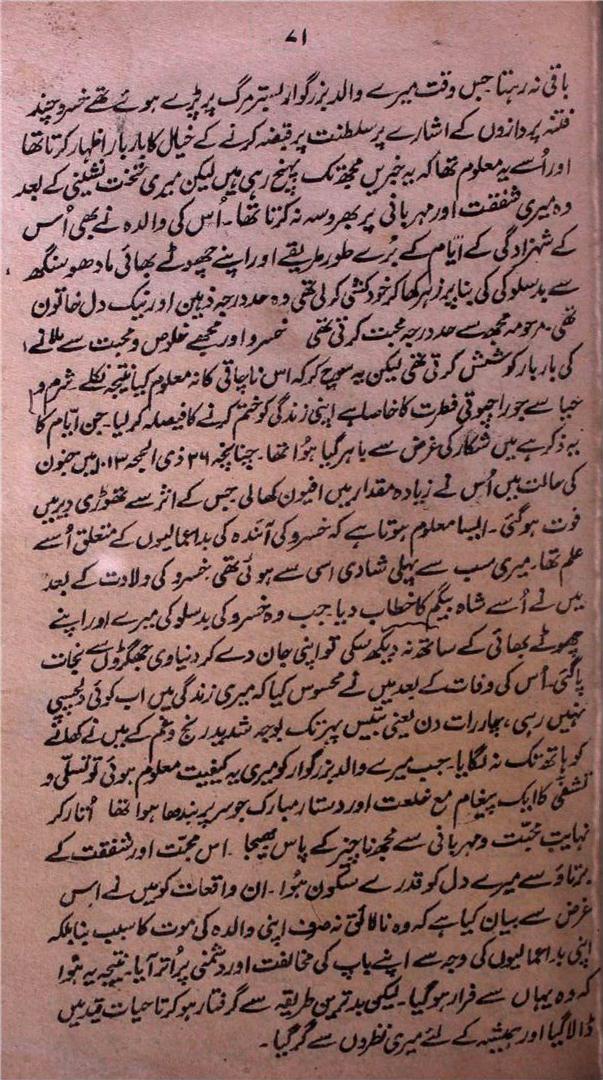 ۷۱
باقی نہ رہتا جس وقت میرے والد بزرگوار بستر مرگ پر پڑے ہوئے تھے خسرو چند
فتنہ پردازوں کے اشارے پر سلطنت پر قبضہ کرنے کے خیال کا بار بار اظہار کرتا تھا
اور اُسے یہ معلوم تھا کہ یہ خبریں مجھ تک پہنچ رہی ہیں لیکن میری تخت نشینی کے بعد
وہ میری شفقت اور مہربانی پر بھروسہ نہ کرتا تھا۔ اُس کی والدہ نے بھی اُس
کے شہزادگی کے ایّام کے بُرے طور طریقے اور اپنے چھوٹے بھائی مادھو سنگھ
سے بدسلوکی کی بنا پر زہر کھا کر خودکشی کر لی تھی وہ حد درجہ ذہین اور نیک دل خاتون
تھی۔ مرحومہ مجھ سے حد درجہ محبت کرتی تھی خسرو اور مجھے خلوص و محبت سے ملانے
کی بار بار کوشش کرتی تھی لیکن یہ سوچ کر کہ اس ناچاقی کا نہ معلوم کیا نتیجہ نکلے شرم و
حیا سے جو راجپوتی فطرت کا خاصا ہے اپنی زندگی کو ختم کرنے کا فیصلہ کر لیا۔ جن ایّام کا
یہ ذکر ہے میں شکار کی غرض سے باہر گیا ہُوا تھا۔ چنانچہ ۲۶ ذی الحجہ ۱۰۱۳ میں جنون
کی حالت میں اُس نے زیادہ مقدار میں افیون کھا لی جس کے اثر سے تھوڑی دیر میں
فوت ہو گئی۔ ایسا معلوم ہوتا ہے کہ خسرو کی آئندہ کی بداعمالیوں کے متعلق اُسے
علم تھا۔ میری سب سے پہلی شادی اسی سے ہوئی تھی خسرو کی ولادت کے بعد
میں نے اُسے شاہ بیگم کا خطاب دیا۔ جب وہ خسرو کی بدسلوکی میرے اور اپنے
چھوٹے بھائی کے ساتھ نہ دیکھ سکی تو اپنی جان دے کر دنیاوی جھگڑوں سے نجات
پا گئی۔ اُس کی وفات کے بعد میں نے محسوس کیا کہ میری زندگی میں اب کوئی دلچسپی
نہیں رہی، چار رات دن یعنی بتیس پہر تک بوجہ شدید رنج و غم کے میں نے کھانے
کو ہاتھ تک نہ لگایا۔ جب میرے والد بزرگوار کو میری یہ کیفیت معلوم ہوئی تو تسلی و
تشفی کا ایک پیغام مع خلعت اور دستار مبارک جو سر پر بندھا ہوا تھا اُتار کر
نہایت محبّت و مہربانی سے مجھ ناچیز کے پاس بھیجا۔ اس محبّت اور شفقت کے
برتاؤ سے میرے دل کو قدرے سکون ہُوا۔ ان واقعات کو میں نے اس
غرض سے بیان کیا ہے کہ وہ نالائق نہ صرف اپنی والدہ کی موت کا سبب بنا بلکہ
اپنی بداعمالیوں کی وجہ سے اپنے باپ کی مخالفت اور دشمنی پر اُتر آیا۔ نتیجہ یہ ہُوا
کہ وہ یہاں سے فرار ہو گیا۔ لیکن بدترین طریقہ سے گرفتار ہو کر تا حیات قید میں
ڈالا گیا اور ہمیشہ کے لئے میری نظروں سے گر گیا۔